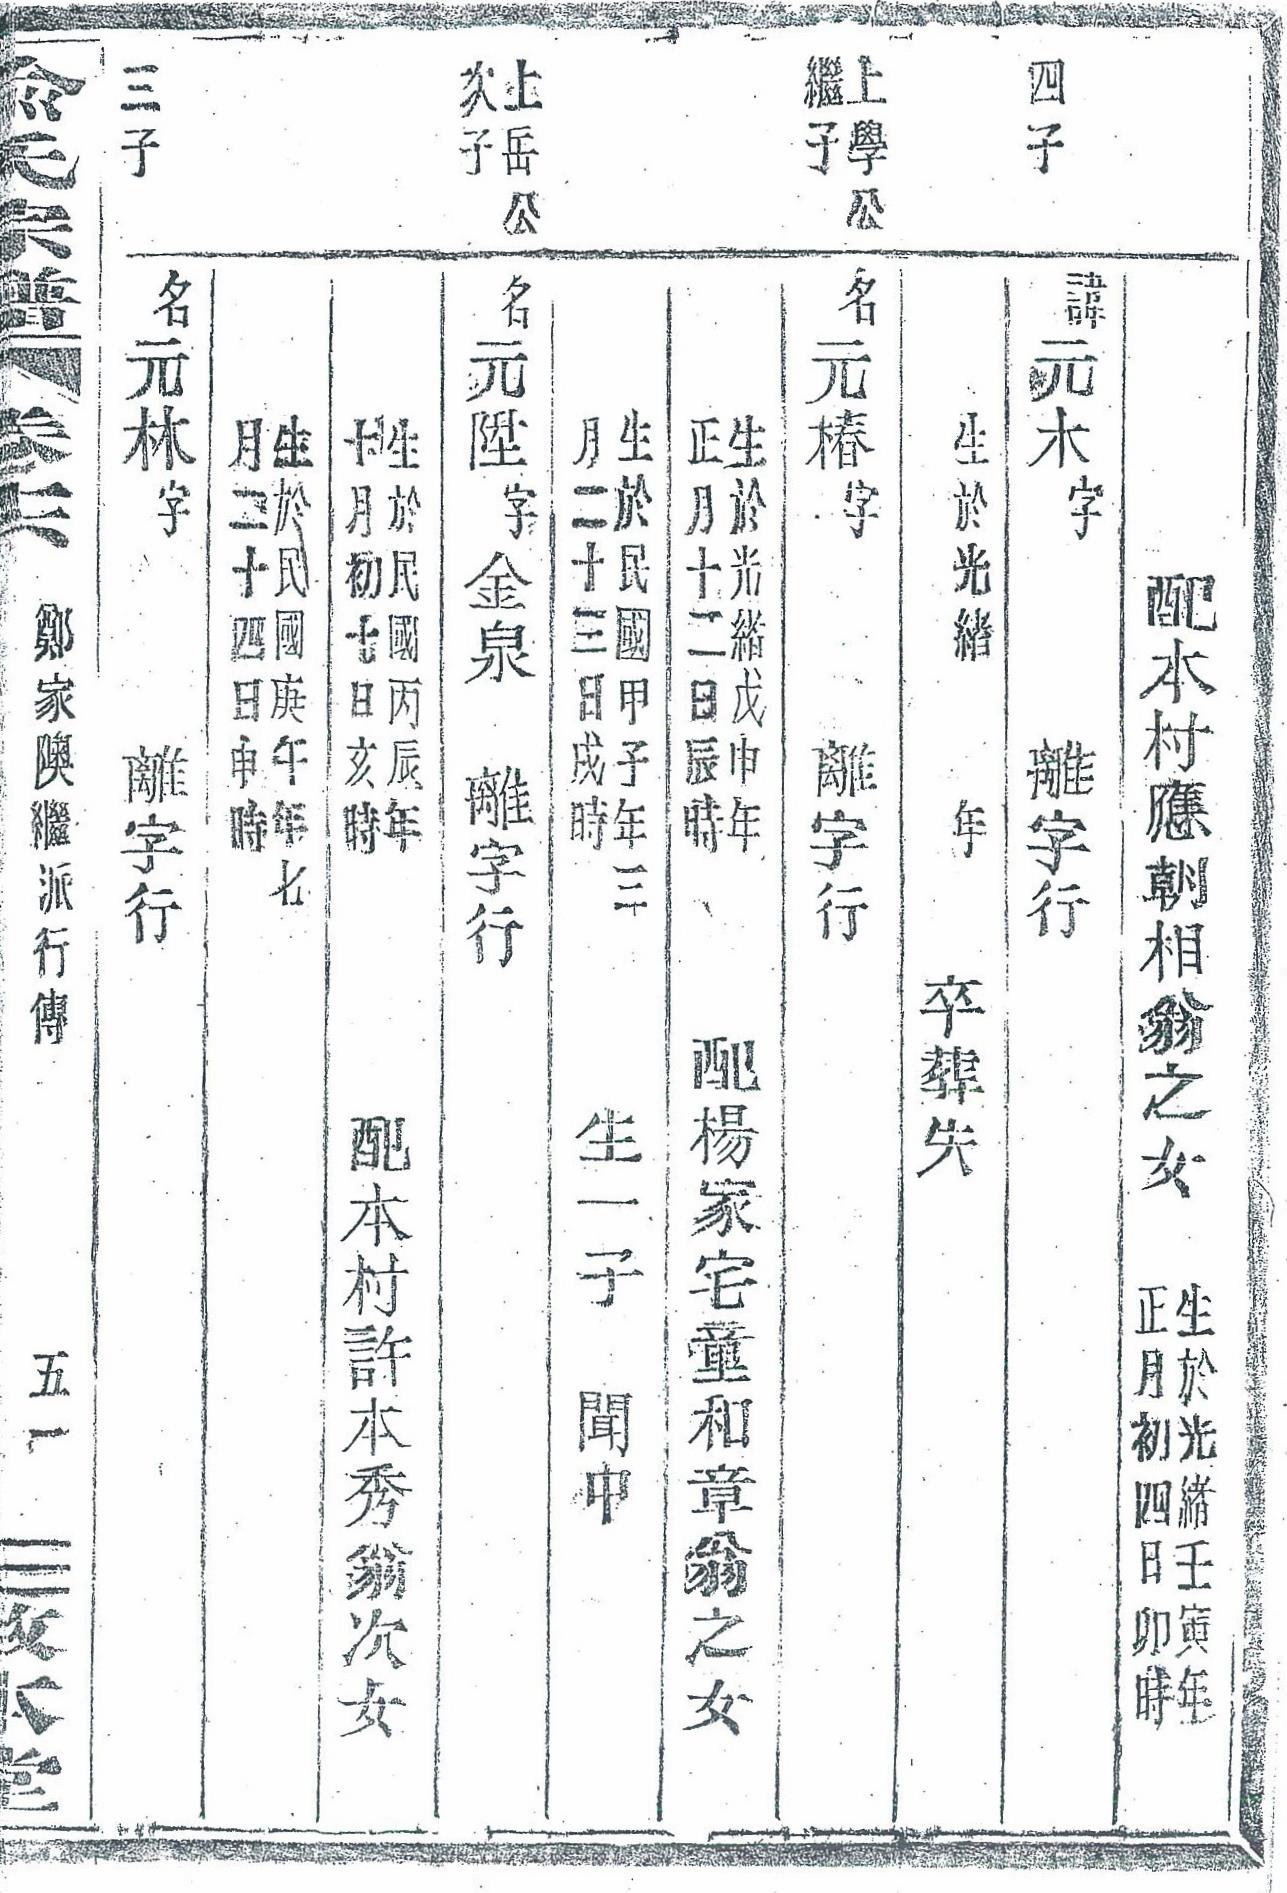 配本村應朝相翁之女 生於光緒壬寅年
正月初四日卯時
四子
諱元木字 離字行
生於光緒 年 卒葬失
上學公
繼子
名元椿字 離字行
生於光緒戊申年
正月十二日辰時 配楊家宅童和章翁之女
生於民國甲子年三
月二十三日戌時 生一子 聞申
上岳公
次子
名元陞字金泉 離字行
生於民國丙辰年
十月初七日亥時 配本村許本秀翁次女
生於民國庚午年七
月二十四日申時
三子
名元林字 離字行
俞氏宗譜 卷六 鄭家隩繼派行傳 五一 敦本堂